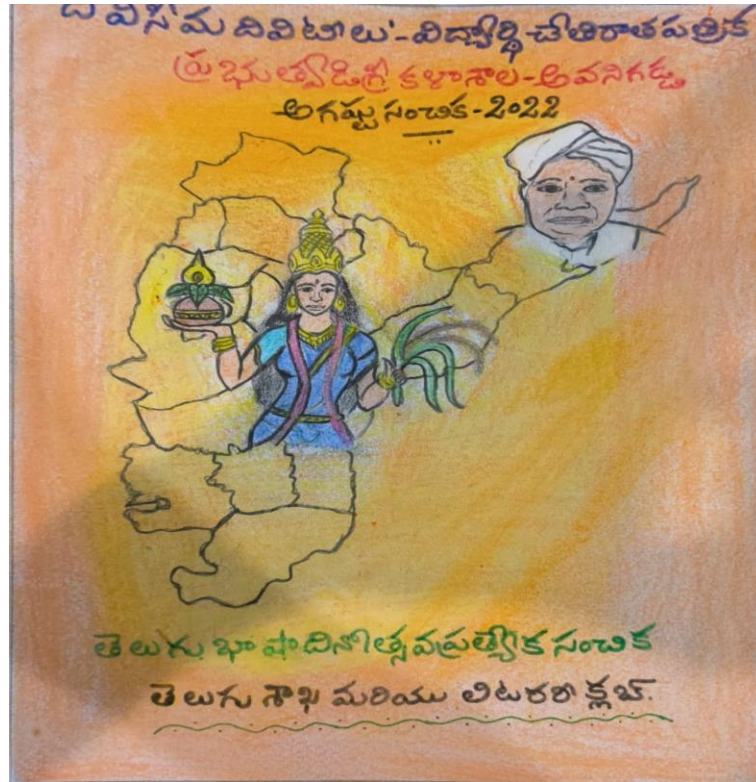 దివిసీమ దివిటీలు'-విద్యార్థి చేతిరాత పత్రిక
ప్రభుత్వ డిగ్రీ కళాశాల-అవనిగడ్డ
అగష్టు సంచిక-2022
తెలుగు భాషా దినోత్సవ ప్రత్యేక సంచిక
తెలుగు శాఖ మరియు లిటరరీ క్లబ్.